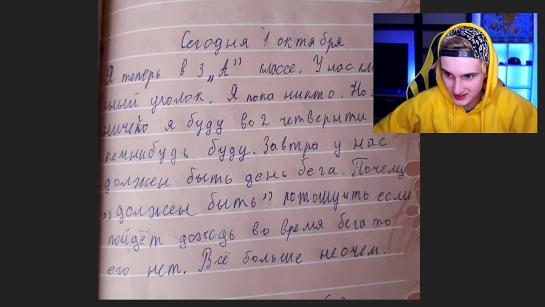 Сегодня 1 октября
Я теперь в 3 „А" классе. У нас кла
ный уголок. Я пока никто. Но
ничего я буду во 2 четверьти
кемнибудь буду. Завтра у нас
должен быть день бега. Почему
"должен быть" потомушто если
пойдёт дождь во время бега то
его нет. Всё больше неочем.